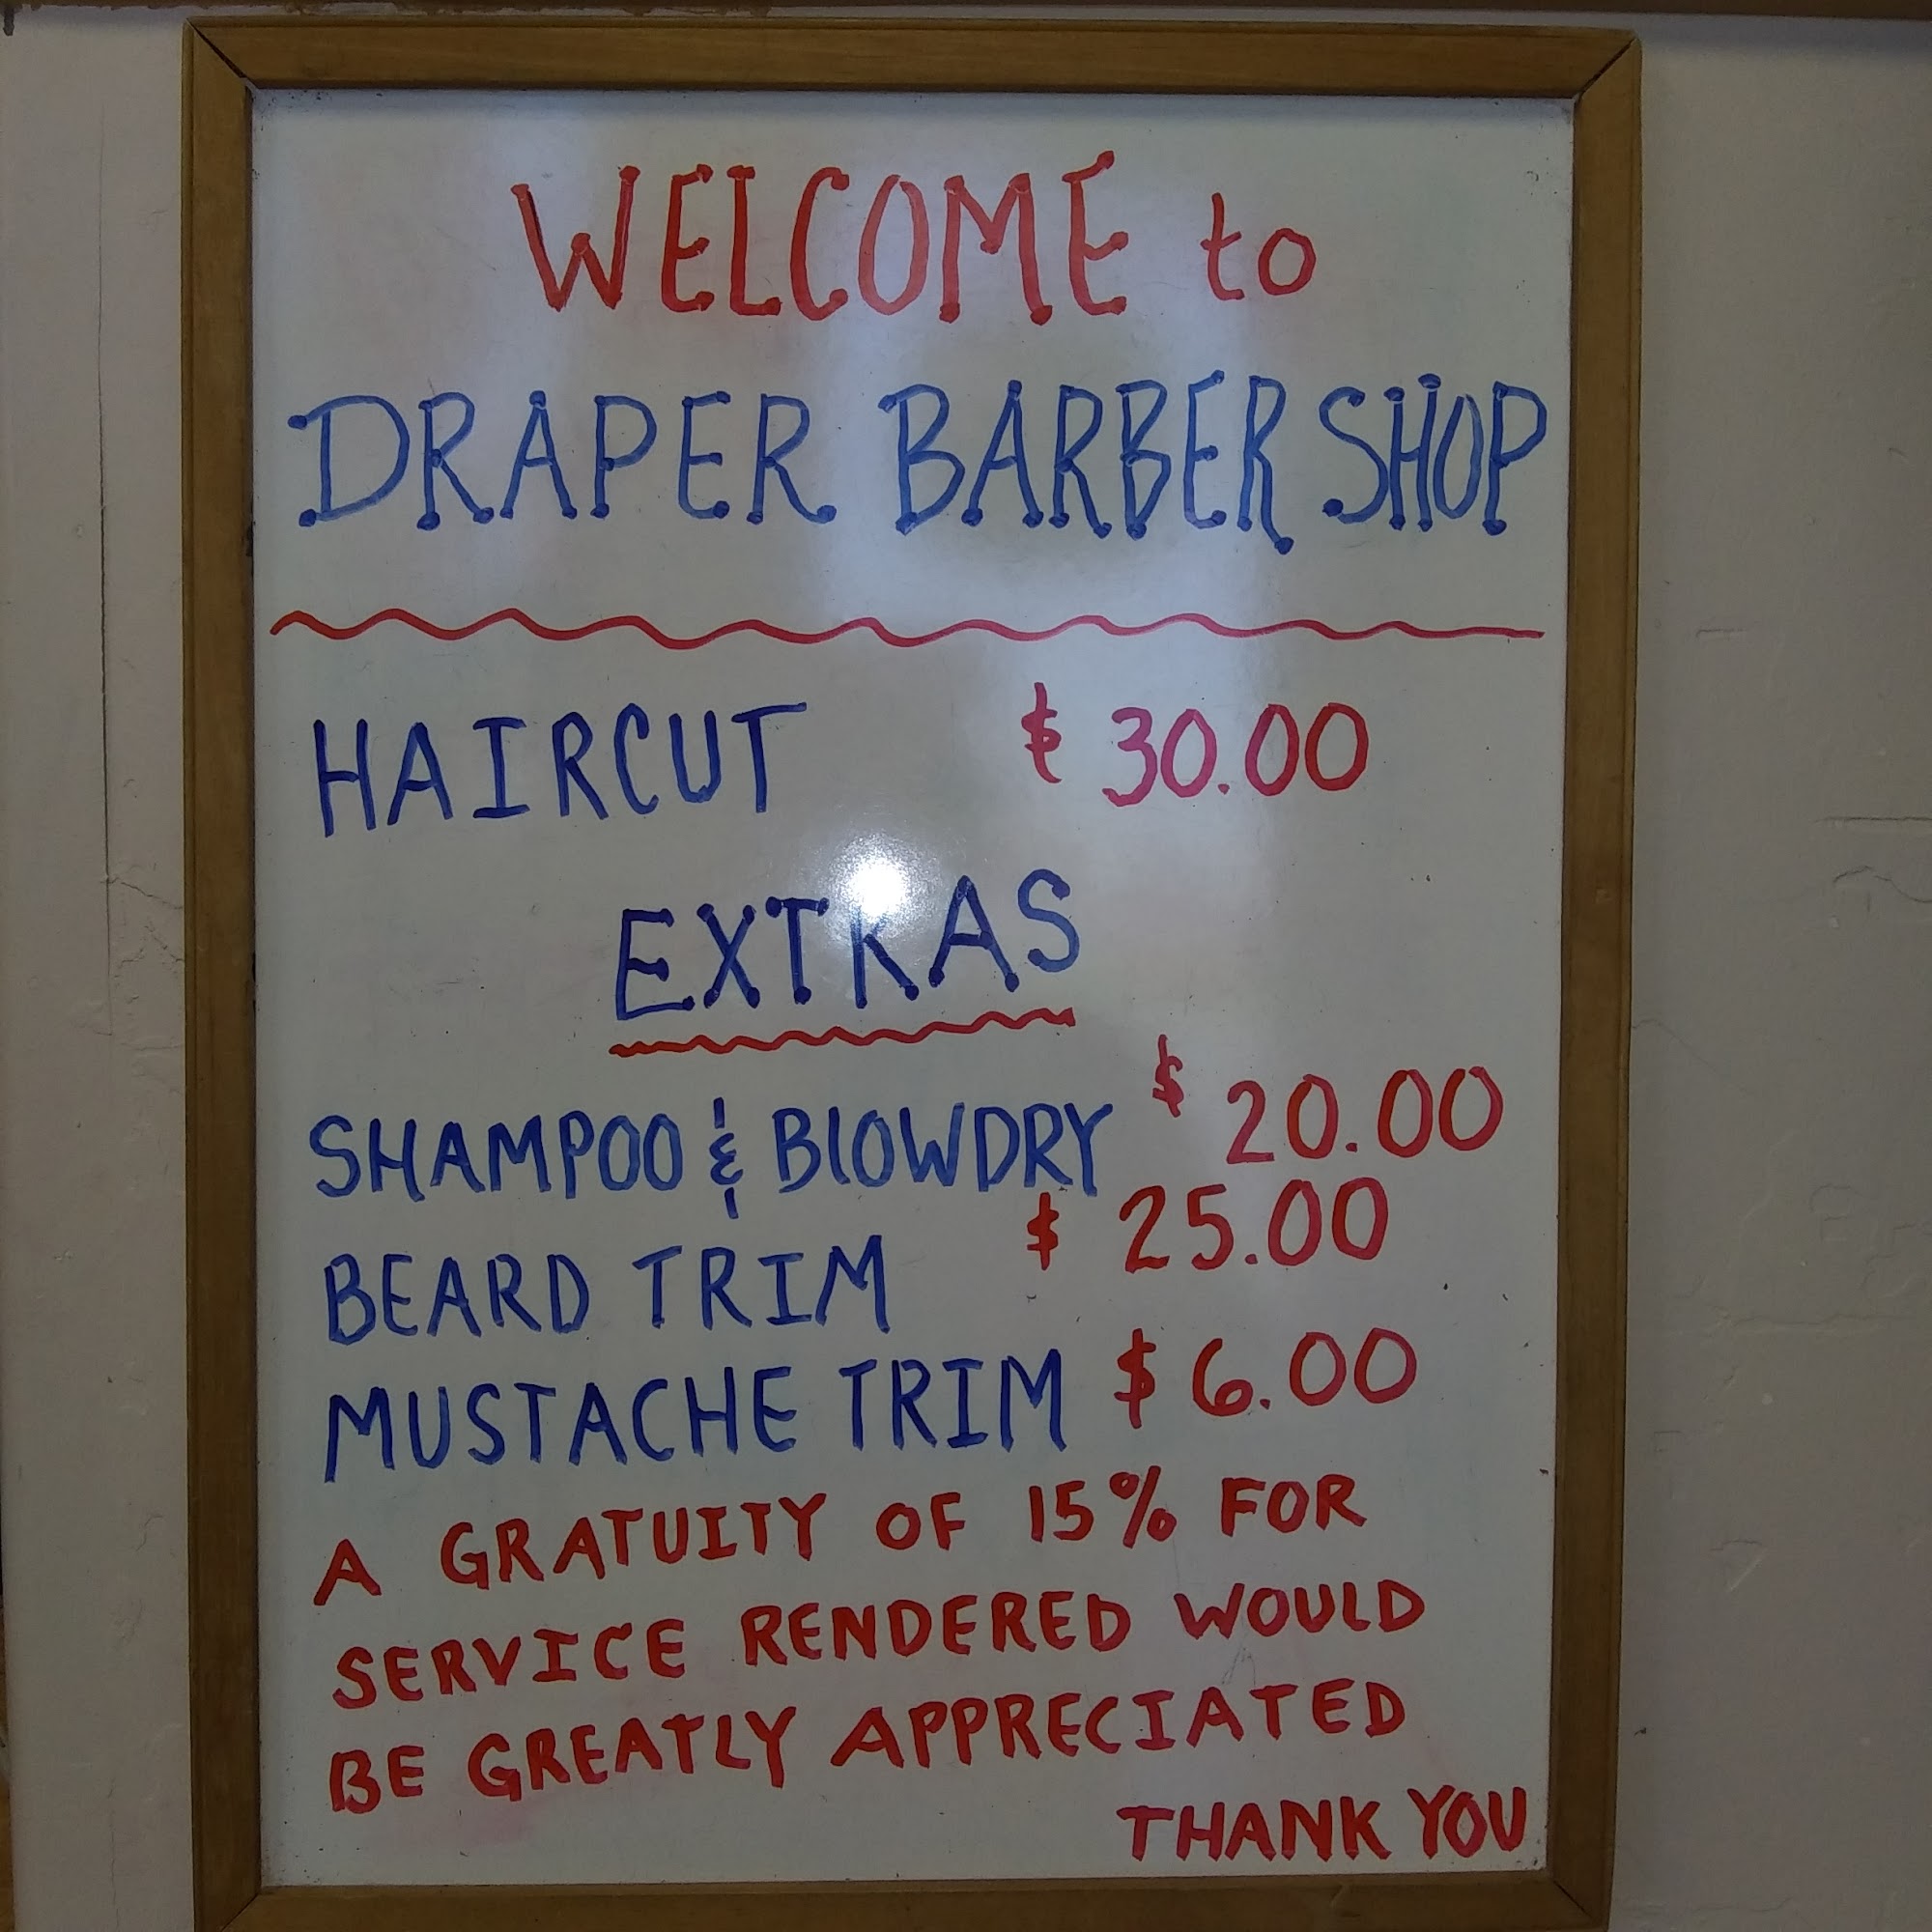 WELCOME to
DRAPER BARBER SHOP
HAIRCUT $ 30.00
EXTRAS
SHAMPOO & BLOWDRY $ 20.00
BEARD TRIM $ 25.00
MUSTACHE TRIM $ 6.00
A GRATUITY OF 15% FOR
SERVICE RENDERED WOULD
BE GREATLY APPRECIATED
THANK YOU